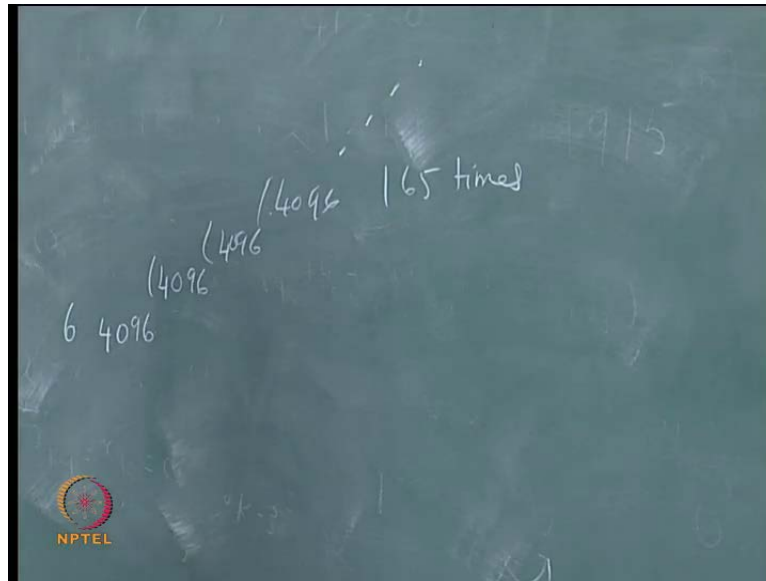 1915
(4096 165 times
(4096
(4096
6 4096
NPTEL